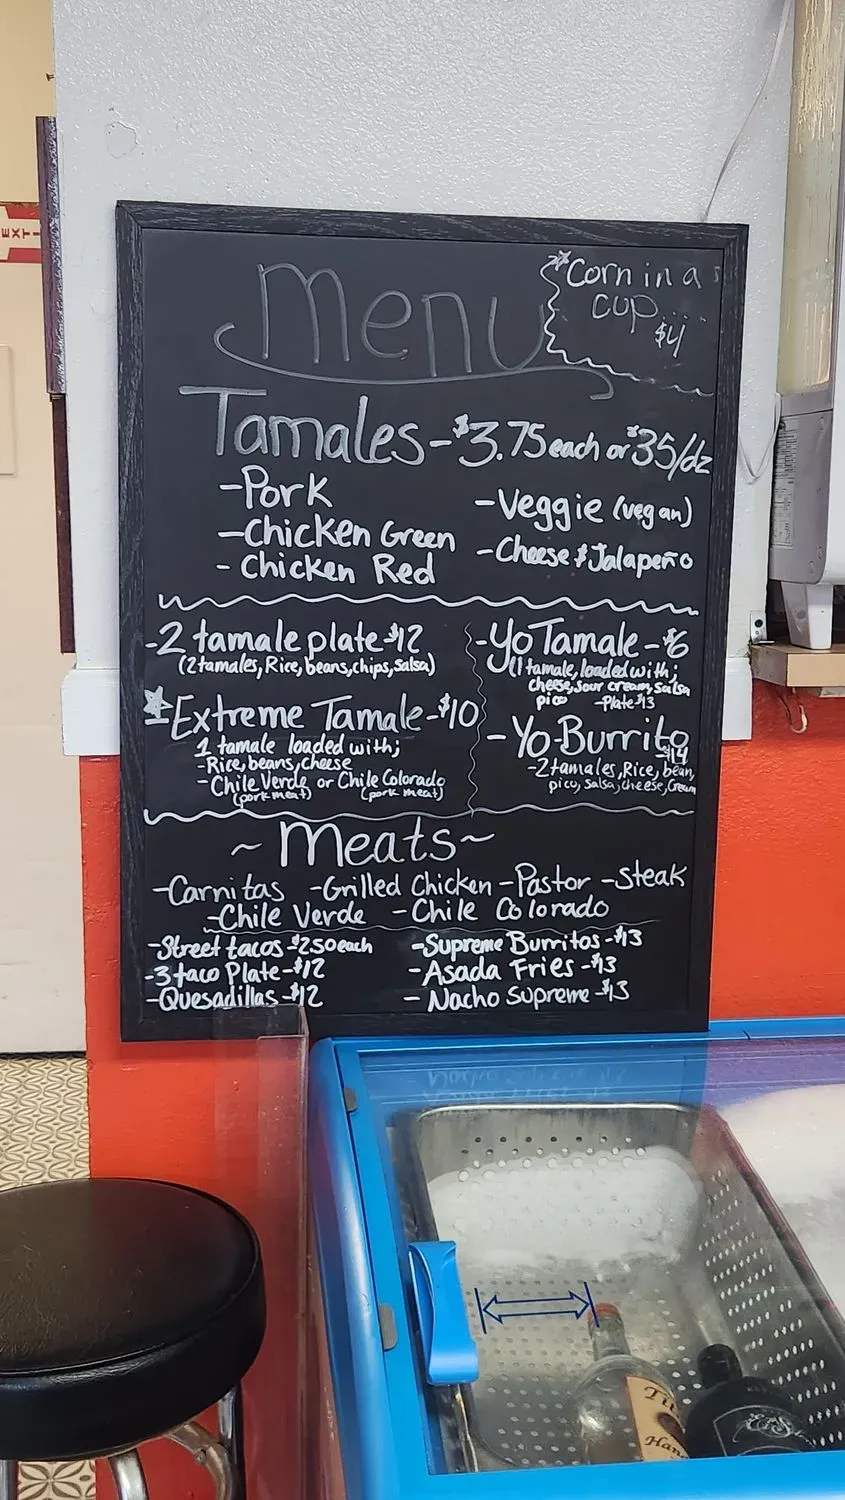 EXIT
Menu
**Corn in a
cup.....
$4
Tamales-$3.75 each or $35/dz
-Pork
-Chicken Green
- Chicken Red
-Veggie (vegan)
-Cheese & Jalapeño
-2 tamale plate-$12
(2 tamales, Rice, beans, chips, salsa)
Extreme Tamale-$10
1 tamale loaded with;
-Rice, beans, cheese
-Chile Verde or Chile Colorado
(pork meat) (pork meat)
-Yo Tamale-$6
(1 tamale, loaded with;
cheese, sour cream, salsa
pico -Plate $13
-Yo-Burrito
-$14
-2 tamales, Rice, bean,
pico, salsa, cheese, Cream
~ Meats~
-Carnitas -Grilled Chicken -Pastor -steak
-Chile Verde -Chile Colorado
-Street tacos-$2.50 each
-3 taco Plate-$12
-Quesadillas-$12
-Supreme Burritos-$13
-Asada Fries-$13
- Nacho Supreme-$13